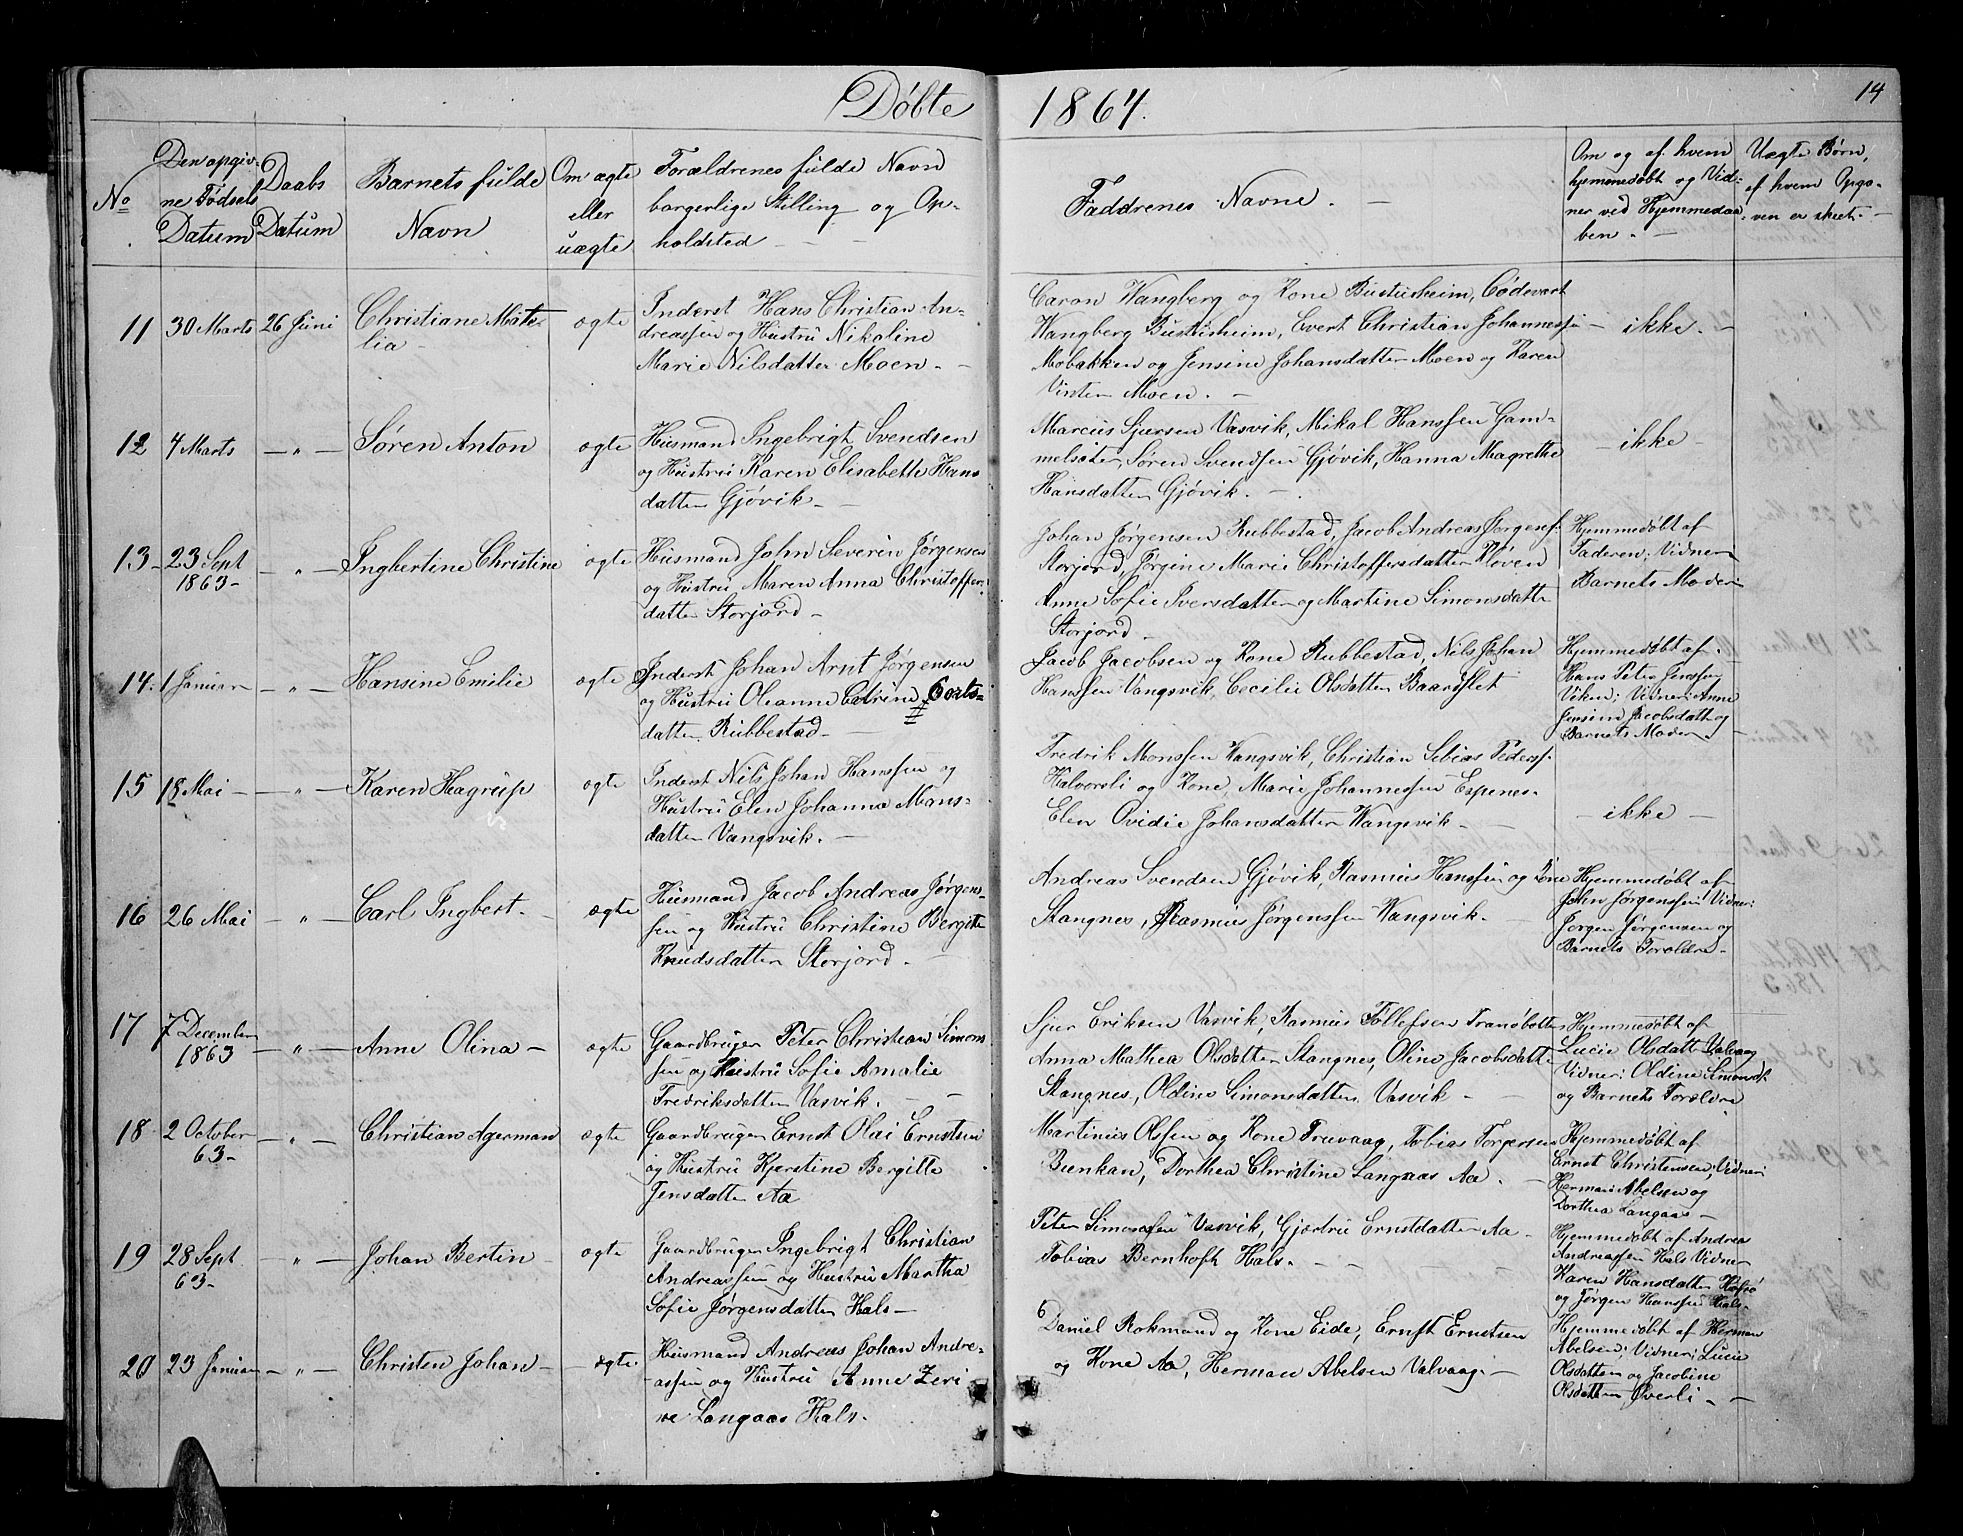 Døbte 1864.
14
No
Den opgiv-
ne Fødsels
Datum
Daabs
Datum
Barnets fulde
Navn
Om ægte
eller
uægte
Forældrenes fulde Navn
borgerlige Stilling og Op-
holdsted
Faddrenes Navne.
Om og af hvem
hjemmedøbt og Vid-
ner ved Hjemmedaa-
ben.
Uægte Børn,
af hvem Opga-
ven er skeet.
11 30 Marts 26 Juni Christiane Mate-
lia
ægte
Inderst Hans Christian An-
dreassen og Hustru Nikoline
Marie Nilsdatter Moen.
Wangberg og Kone Bustusheim,
Wangberg Bustusheim, Evert Christian Johannessen
Mobakken og Jensine Johansdatter Moen og Karen
Moen.
ikke.
12 4 Marts - " - Søren Anton
ægte
Husmand Ingebrigt Svendsen
og Hustru Karen Elisabeth Hans
datter Gjøvik
Marcus Sjursen Vasvik, Mikal Hanssen Gam-
melsæter, Søren Svendsen Gjøvik, Hanna Magrethe
Hansdatter Gjøvik.
ikke
13 23 Sept
1863
- " - Ingbertine Christine
ægte
Husmand John Severin Jørgensen
og Hustru Maren Anna Christoffer-
datter Storjord
Johan Jørgensen Rubbestad, Jacob Andreas Jørgensen
Storjord, Jørgine Marie Christoffersdatter Kløven
Anne Sofie Iversdatter og Martine Simonsdatter
Storjord
Hjemmedøbt af
Faderen; Vidner
Barnets Moder
14. 1 Januar - " - Hansine Emilie
ægte
Inderst Johan Arnt Jørgensen
og Hustru Oleanne Catrine
datter Rubbestad
Jacob Jacobsen og Kone Rubbestad, Nils Johan
Hanssen Vangsvik, Cecilie Olsdatter Baarslet
Hjemmedøbt af
Hans Peter Jenssen
Viken; Vidner: Anne
Jensine Jacobsdatt og
Barnets Moder
15 18 Mai - " - Karen Hagrup
ægte
Inderst Nils Johan Hanssen og
Hustru Elen Johanna Mons-
datter Vangsvik.
Fredrik Monssen Vangsvik, Christian Tobias Pederss.
Halvorsli og Kone, Marie Johannessen Espenes
Elen Ovidie Johansdatter Wangsvik
ikke
16 26 Mai - " - Carl Ingbert.
ægte
Husmand Jacob Andreas Jørgens-
sen og Hustru Christine Bergitte
Knudsdatter Storjord.
Andreas Svendsen Gjøvik, Rasmus Hanssen og Kone
Stangnes, Rasmus Jørgenssen Wangsvik.
Hjemmedøbt af
John Jørgenssen Vidner:
Jørgen Jørgensen og
Barnets Forældre
17 7 December
1863
- " - Anne Olina
ægte
Gaardbruger Peter Christian Simons
sen og Hustru Sofie Amalie
Fredriksdatter Vasvik.
Sjur Eriksen Vasvik, Rasmus Tollefsen Tranøbotten
Anna Mathea Olsdatter Stangnes, Oline Jacobsdatter
Stangnes, Oldine Simonsdatter Vasvik
Hjemmedøbt af
Lucie Olsdatt Valvaag
Vidner: Oldine Simonsd.
og Barnets Forældre
18 2 October
63
- " - Christian Agerman
ægte
Gaardbruger Ernst Olai Ernstsen
og Hustru Kjerstine Bergitte
Jensdatter Aa
Martinus Olsen og Kone Truvaag, Tobias Torgersen
Bunkan, Dorthea Christine Langaas Aa.
Hjemmedøbt af
Ernst Christensen; Vidner:
Herman Abelsen og
Dorthea Langaas
19 28 Sept
63
- " - Johan Bertin
ægte
Gaardbruger Ingebrigt Christian
Andreassen og Hustru Martha
Sofie Jørgensdatter Hals
Peter Simonssen Vasvik, Gjertru Ernstdatter Aa
Tobias Bernhoft Hals.
Hjemmedøbt af Andrea
Andreassen Hals Vidner
Karen Hansdatter
og Jørgen Hanssen Hals
20 23 Januar - " - Christen Johan
ægte
Husmand Andreas Johan Andre-
assen og Hustru Anne Zeri
ne Langaas Hals.
Daniel Rokmand og Kone Eide, Ernst Ernstsen
og Kone Aa, Herman Abelsen Valvaag
Hjemmedøbt af Herman
Abelsen; Vidner; Lucie
Olsdatter og Jacobine
Olsdatter Øverli